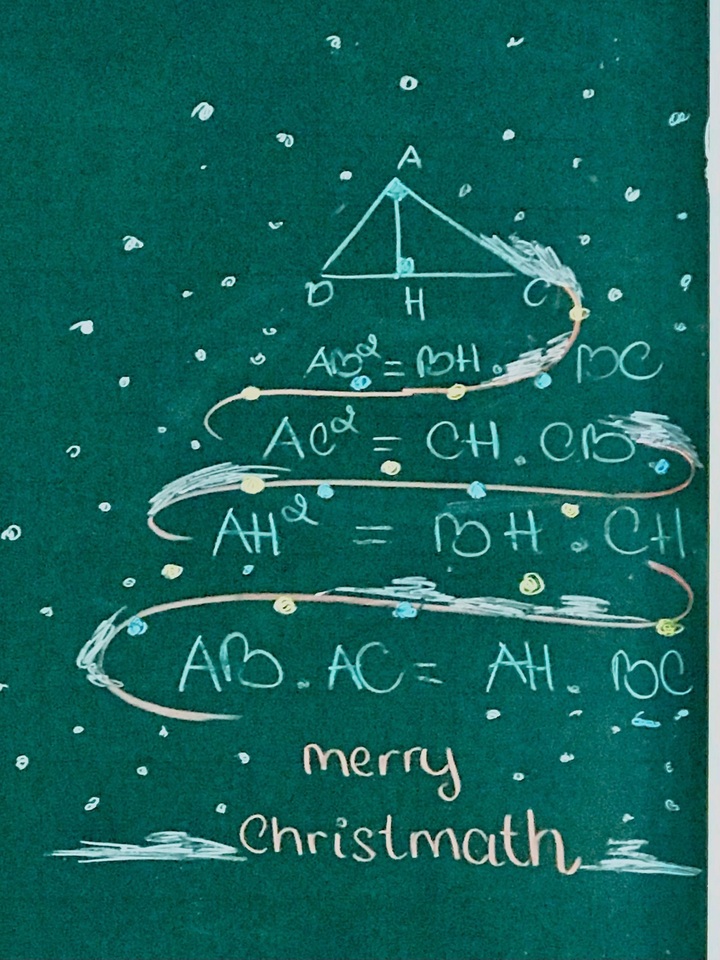 A
B H C
AB² = BH . BC
AC² = CH . CB
AH² = BH . CH
AB . AC = AH . BC
merry
Christmath